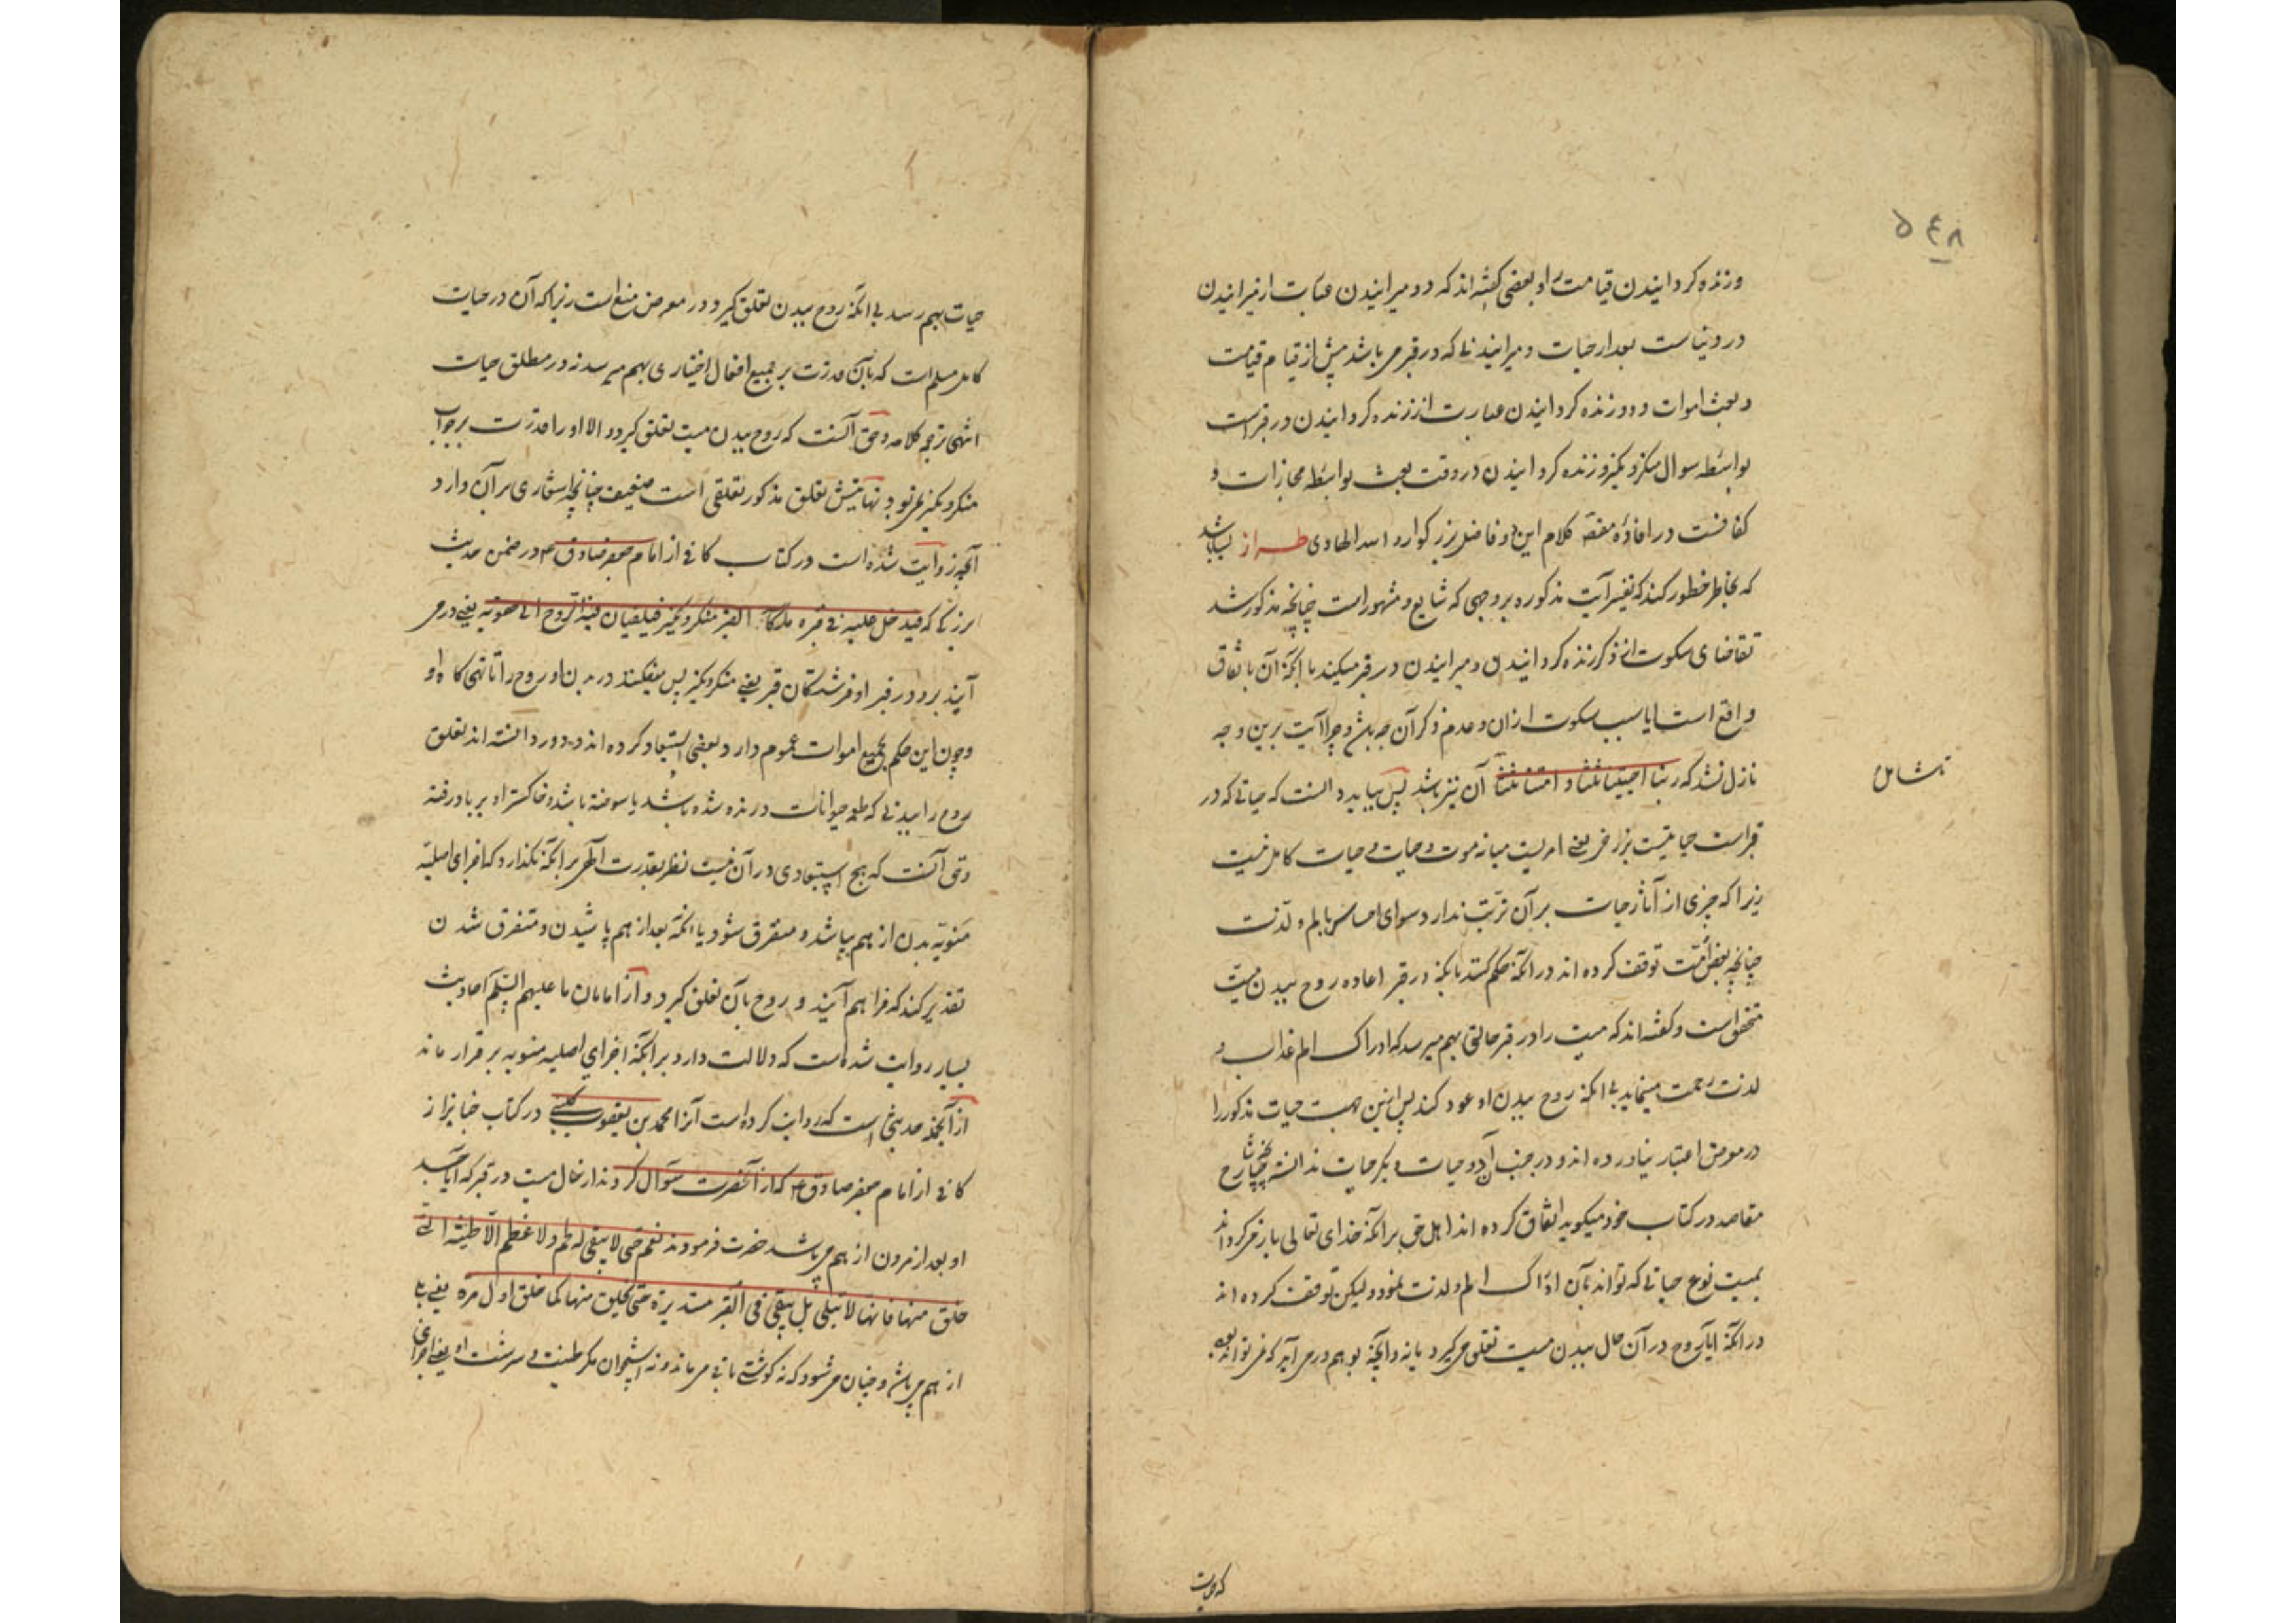 ۵۴۸
وزنده کردانیدن قیامت را و بعضی گفته اند که دو میرانیدن عبارت از میرانیدن
در دنیاست بعد از حیات و میرانیدنی که در قبر می باشد پیش از قیام قیامت
و بعث اموات و دو زنده کردانیدن عبارت از زنده کردانیدن در قبر است
بواسطه سوال منکر و نکیر و زنده کردانیدن در وقت بعث بواسطه مجازات و
کلام این دو فاضل بزرکوار و الله الهادی طراز
که بخاطر خطور کند که تفسیر آیت مذکوره بر وجهی که شایع و مشهور است چنانچه مذکور شد
تقاضای سکوت از ذکر زنده کردانیدن و میرانیدن در قبر میکند با انکه آن باتفاق
واقع است ایا سبب سکوت از ان و عدم ذکر آن چه باشد و چرا آیت برین وجه
نازل نشد که ربنا احییتنا ثلثا و امتنا ثلثا آن نیز باشد پس بباید دانست که حیاتی که در
تا شامل
قبر است حیاتیست برزخی یعنی امریست میانه موت و حیات و حیات کامل نیست
زیرا که چیزی از آثار حیات بر آن ترتب ندارد سوای احساس بالم و لذت
چنانچه بعض امت توقف کرده اند در انکه حکم کنند بانکه در قبر اعاده روح ببدن میت
متحقق است و گفته اند که میت را در قبر حالتی بهم میرسد که ادراک الم عذاب و
لذت رحمت مینماید بی انکه روح ببدن او عود کند پس ازین جهت حیات مذکور را
در معرض اعتبار نیاورده اند و در جنب آن دو حیات دیکر حیات ندانسته چنانچه شارح
مقاصد در کتاب خود میکوید اتفاق کرده اند اهل حق بر انکه خدای تعالی باز می کرداند
بمیت نوع حیاتی که تواند بآن ادراک الم و لذت نمود و لیکن توقف کرده اند
در انکه ایا روح در آن حال ببدن میت تعلق می کیرد یا نه و آنچه بوهم در می آید که نمی تواند بود
که حیات
حیات بهم رسد بی انکه روح ببدن تعلق کیرد در معرض منع است زیرا که آن در حیات
کامل مسلم است که بآن قدرت بر جمیع افعال اختیاری بهم میرسد نه در مطلق حیات
انتهی ترجمه کلامه و حق آنست که روح ببدن میت تعلق کیرد و الا او را قدرت بر جواب
منکر و نکیر نمی بود نهایتش تعلق مذکور تعلقی است ضعیف چنانچه اشعاری بر آن دارد
آنچه روایت شده است در کتاب کافی از امام جعفر صادق ع در ضمن حدیث
که فیدخل علیه فی قبره ملکا القبر منکر و نکیر فیلقیان فیه الروح الی حقویه یعنی در می
آیند برو در قبر او فرشتکان قبر یعنی منکر و نکیر پس میفکنند در بدن او روح را تا تهی کاه او
و چون این حکم بجمیع اموات عموم دارد بعضی استبعاد کرده اند و دور دانسته اند تعلق
روح را ببدنی که طعمه حیوانات درنده شده باشد یا سوخته باشد و خاکستر او بر باد رفته
و حق آنست که هیچ استبعادی در آن نیست نظر بقدرت الهی بر انکه نکذارد که اجزای اصلیه
منویه بدن از هم بپاشد و متفرق شود یا انکه بعد از هم پاشیدن و متفرق شدن
تقدیر کند که فراهم آیند و روح بآن تعلق کیرد و از امامان ما علیهم السلم احادیث
بسیار روایت شده است که دلالت دارد بر انکه اجزای اصلیه منویه بر قرار ماند
از آنجمله حدیثی است که روایت کرده است آنرا محمد بن یعقوب کلینی در کتاب جنایز از
کافی از امام جعفر صادق ع که از آنحضرت سؤال کردند از حال میت در قبر که ایا جسد
او بعد از مردن از هم می پاشد حضرت فرمودند نعم حتی لا یبقی له لحم و لا عظم الا طینته التی
خلق منها فانها لا تبلی بل یبقی فی القبر مستدیرة حتی یخلق منها کما خلق اول مرة یعنی بلی
از هم می پاشد و چنان می شود که نه کوشتی باقی می ماند و نه استخوان مکر طینت و سرشت او یعنی اجزای